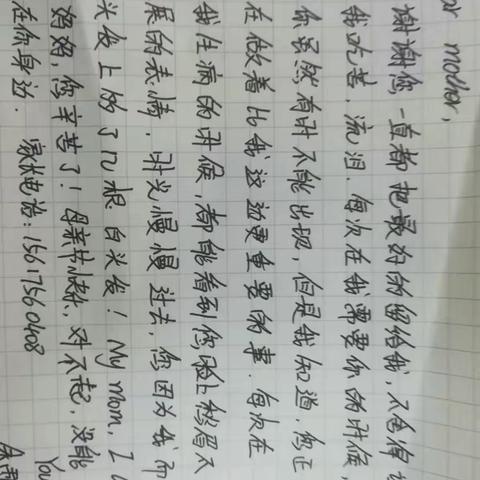 mother,
谢谢您一直都把最好的留给我,不舍得
我吃苦、流泪.每次在我需要你的时候,
你虽然有时不能出现,但是我知道,您正
在做着比我这边更重要的事.每次在
我生病的时候,都能看到你脸上愁眉不
展的表情.时光慢慢过去,您因为我而
头发上的了几根白头发!My mom, I
妈妈,您辛苦了!母亲节快乐,对不起,没能
在你身边. 家长电话:15617560408
You